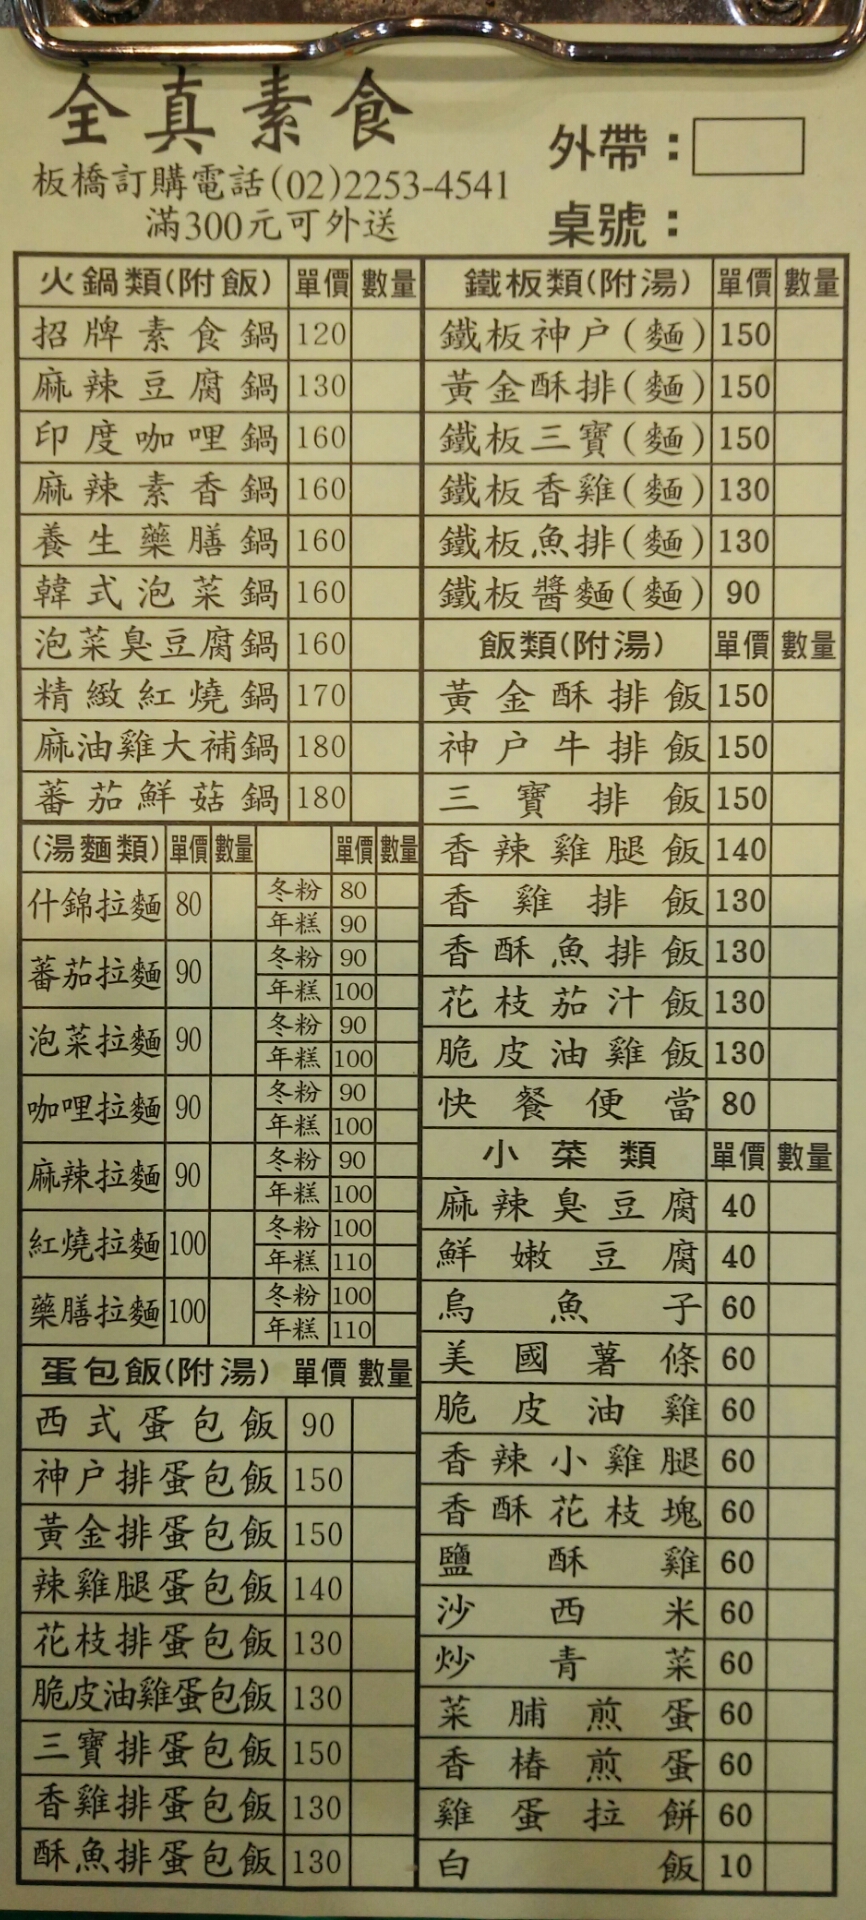 全真素食
板橋訂購電話(02)2253-4541
滿300元可外送
外帶：
桌號：
火鍋類(附飯) 單價 數量
招牌素食鍋 120
麻辣豆腐鍋 130
印度咖哩鍋 160
麻辣素香鍋 160
養生藥膳鍋 160
韓式泡菜鍋 160
泡菜臭豆腐鍋 160
精緻紅燒鍋 170
麻油雞大補鍋 180
蕃茄鮮菇鍋 180
(湯麵類) 單價 數量 單價 數量
什錦拉麵 80 冬粉 80
年糕 90
蕃茄拉麵 90 冬粉 90
年糕 100
泡菜拉麵 90 冬粉 90
年糕 100
咖哩拉麵 90 冬粉 90
年糕 100
麻辣拉麵 90 冬粉 90
年糕 100
紅燒拉麵 100 冬粉 100
年糕 110
藥膳拉麵 100 冬粉 100
年糕 110
蛋包飯(附湯) 單價 數量
西式蛋包飯 90
神戶排蛋包飯 150
黃金排蛋包飯 150
辣雞腿蛋包飯 140
花枝排蛋包飯 130
脆皮油雞蛋包飯 130
三寶排蛋包飯 150
香雞排蛋包飯 130
酥魚排蛋包飯 130
鐵板類(附湯) 單價 數量
鐵板神戶(麵) 150
黃金酥排(麵) 150
鐵板三寶(麵) 150
鐵板香雞(麵) 130
鐵板魚排(麵) 130
鐵板醬麵(麵) 90
飯類(附湯) 單價 數量
黃金酥排飯 150
神戶牛排飯 150
三寶排飯 150
香辣雞腿飯 140
香雞排飯 130
香酥魚排飯 130
花枝茄汁飯 130
脆皮油雞飯 130
快餐便當 80
小菜類 單價 數量
麻辣臭豆腐 40
鮮嫩豆腐 40
烏魚子 60
美國薯條 60
脆皮油雞 60
香辣小雞腿 60
香酥花枝塊 60
鹽酥雞 60
沙西米 60
炒青菜 60
菜脯煎蛋 60
香椿煎蛋 60
雞蛋拉餅 60
白飯 10